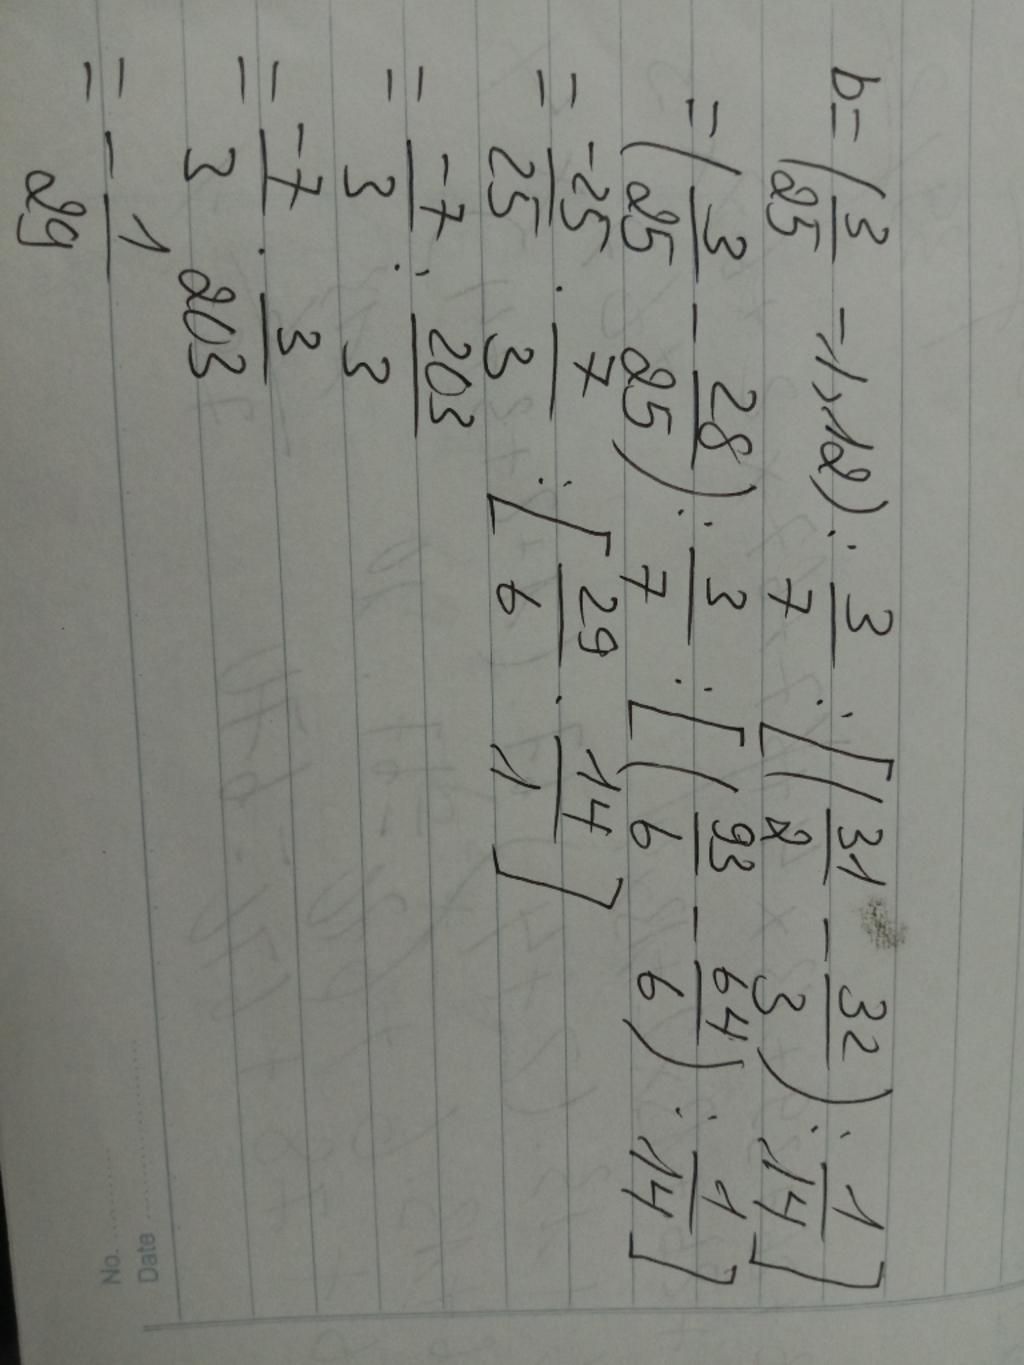 b = (3/25 - 1,12) : 3/7 : [(31/2 - 32/3) : 1/14]
= (3/25 - 28/25) : 3/7 : [(93/6 - 64/6) : 1/14]
= -25/25 . 7/3 : [29/6 . 14/1]
= -7/3 : 203/3
= -7/3 . 3/203
= -1/29
No. ........
Date ........